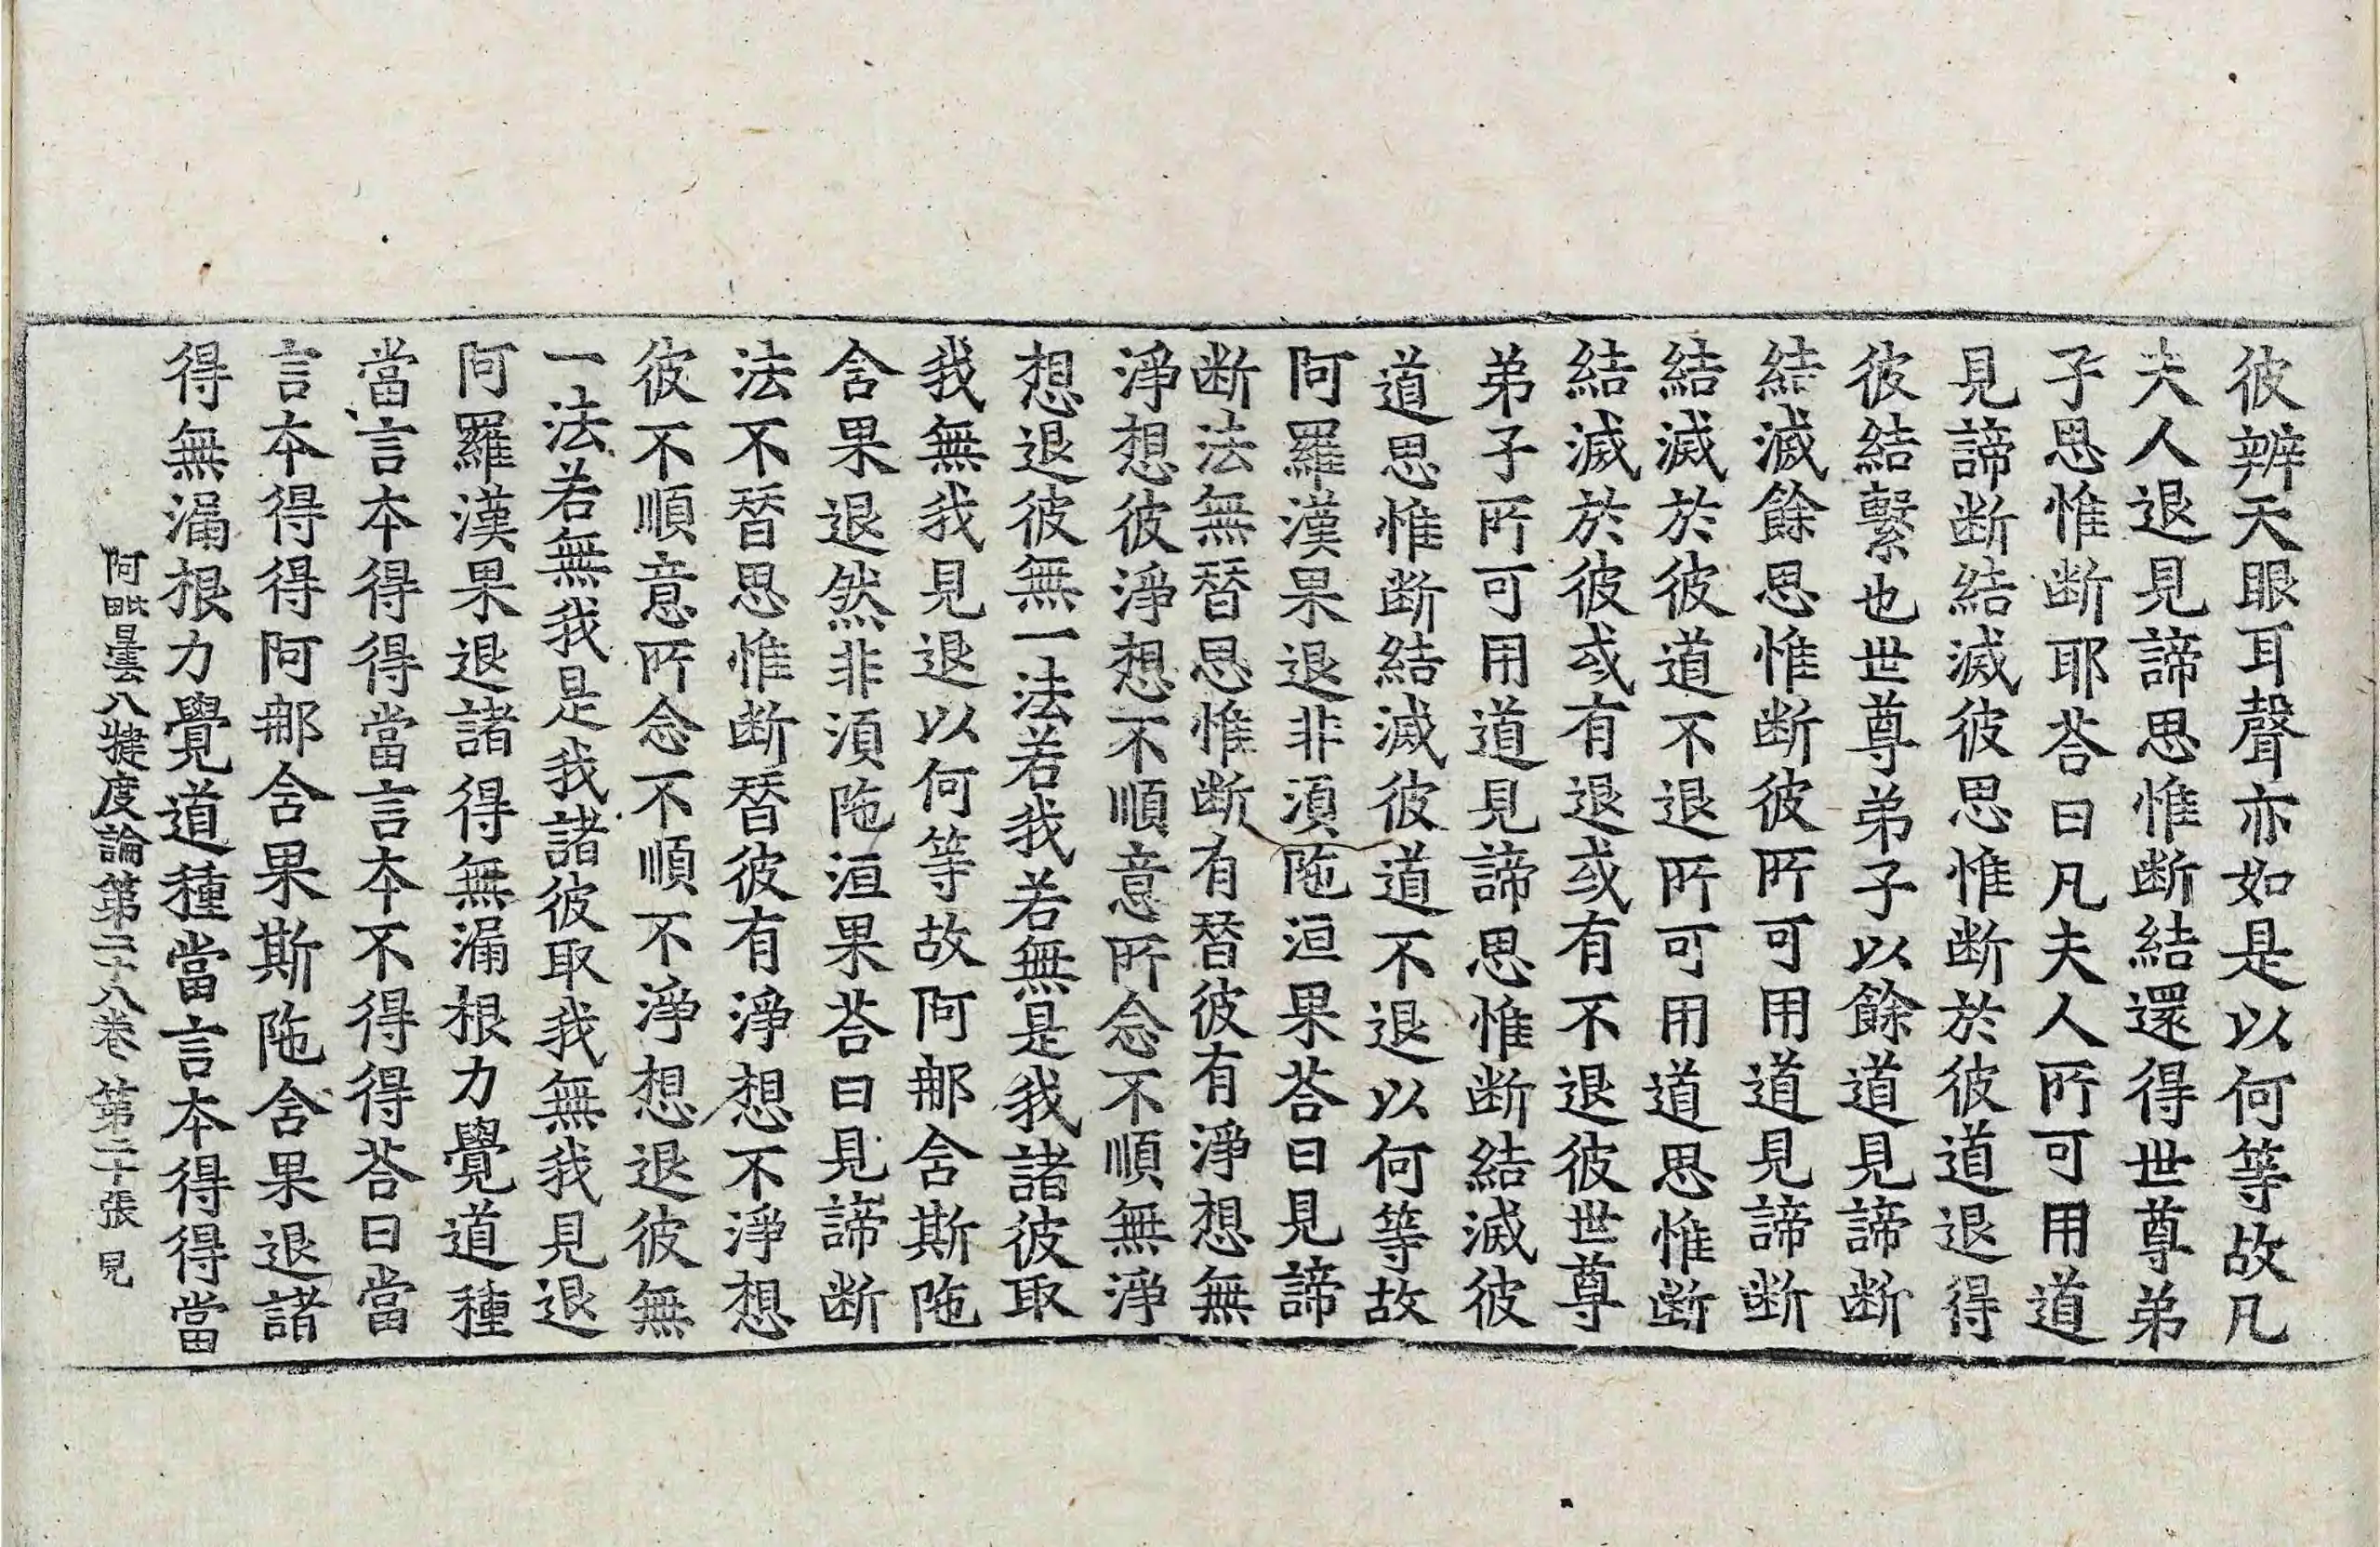 彼辨天眼耳聲亦如是以何等故凡
夫人退見諦思惟断結還得世尊弟
子思惟断耶荅曰凡夫人所可用道
見諦断結滅彼思惟断於彼道退得
彼結繫也世尊弟子以餘道見諦断
結滅餘思惟断彼所可用道見諦断
結滅於彼道不退所可用道思惟断
結滅於彼或有退或有不退彼世尊
弟子所可用道見諦思惟断結滅彼
道思惟断結滅彼道不退以何等故
阿羅漢果退非湏陁洹果荅曰見諦
断法無㬱思惟断有㬱彼有淨想無
淨想彼淨想不順意所念不順無淨
想退彼無一法若我若無是我諸彼取
我無我見退以何等故阿那含斯陁
含果退然非湏陁洹果荅曰見諦断
法不㬱思惟断㬱彼有淨想不淨想
彼不順意所念不順不淨想退彼無
一法若無我是我諸彼取我無我見退
阿羅漢果退諸得無漏根力覺道種
當言本得得當言本不得得荅曰當
言本得得阿那含果斯陁含果退諸
得無漏根力覺道種當言本得得當
阿毗曇八犍度論第二十八卷 第二十張 見